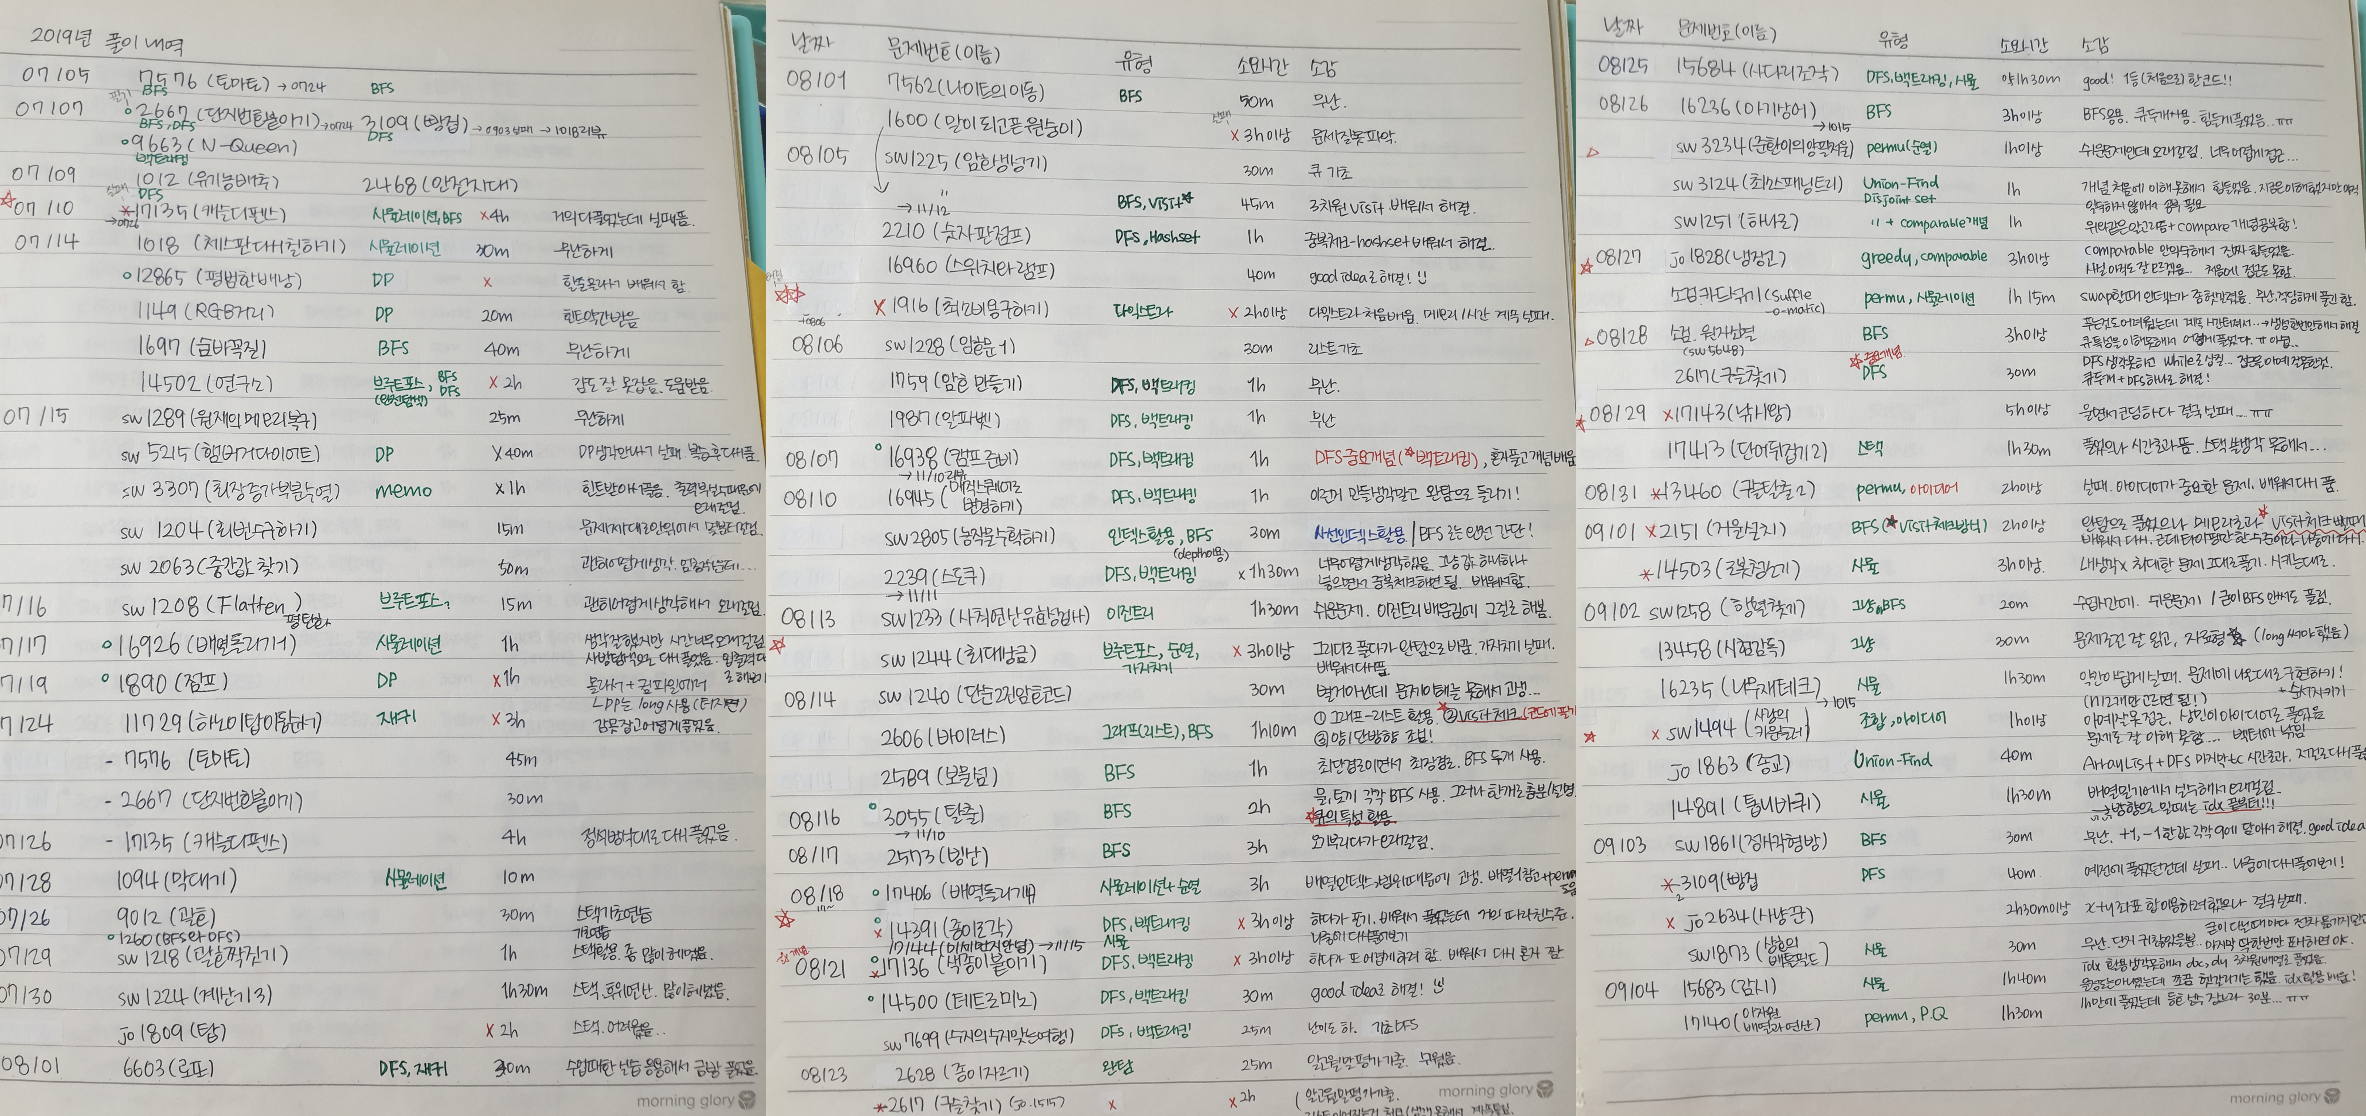 2019년 풀이 내역
07/05 7576 (토마토) → 0724 BFS
BFS
07/07 2667 (단지번호붙이기) → 0724 3109 (빵집) → 0903 실패 → 1018 리뷰
BFS, DFS DFS
9663 (N-Queen)
백트래킹
07/09 1012 (유기농배추) 2468 (안전지대)
DFS
07/10 17135 (캐슬디펜스) 시뮬레이션, BFS x 4h 거의다풀었는데 실패뜸.
→ 0726
07/14 1018 (체스판다시칠하기) 시뮬레이션 30m 무난하게
12865 (평범한배낭) DP x 할줄몰라서 배워서 함.
1149 (RGB거리) DP 20m 힌트약간받음
1697 (숨바꼭질) BFS 40m 무난하게
14502 (연구소) 브루트포스, BFS DFS x 2h 감도 잘 못잡음. 도움받음.
(완전탐색)
07/15 sw 1289 (원재의 메모리복구) 25m 무난하게
sw 5215 (햄버거다이어트) DP x 40m DP생각안나서 실패. 복습후다시품.
sw 3307 (최장증가부분수열) memo x 1h
sw 1204 (최빈수구하기) 15m
sw 2063 (중간값 찾기) 50m 괜히어렵게생각.
7/16 sw 1208 (Flatten) 브루트포스, 15m 괜히어렵게생각해서 오래걸림.
평탄화
7/17 16926 (배열돌리기1) 시뮬레이션 1h 생각잘했지만 시간너무오래걸림
7/19 1890 (점프) DP x 1h
DP는 long 사용
7/24 11729 (하노이탑이동하기) 재귀 x 3h 감못잡고어렵게풀었음.
- 7576 (토마토) 45m
- 2667 (단지번호붙이기) 30m
07/26 - 17135 (캐슬디펜스) 4h 정석방식대로 다시 풀었음.
07/28 1094 (막대기) 시뮬레이션 10m
07/26 9012 (괄호) 30m 스택기초연습
1260 (BFS와 DFS) 기초연습
07/29 sw 1218 (괄호짝짓기) 1h 스택활용. 좀 많이헤맸음.
07/30 sw 1224 (계산기3) 1h30m 스택, 후위연산. 많이헤맸음.
jo 1809 (탑) x 2h 스택. 어려웠음..
08/01 6603 (로또) DFS, 재귀 30m 수업때한 실습 응용해서 금방 풀었음.
morning glory
날짜 문제번호(이름) 유형 소요시간 소감
08/01 7562 (나이트의이동) BFS 50m 무난.
1600 (말이 되고픈 원숭이) 실패 x 3h이상 문제잘못파악.
08/05 sw1225 (암호생성기) 30m 큐 기초
" → 11/12 BFS, visit 45m 3차원 visit 배워서 해결.
2210 (숫자판점프) DFS, Hashset 1h 중복체크-hashset 배워서 해결.
16960 (스위치와램프) 40m good idea로 해결!
x 1916 (최소비용구하기) 다익스트라 x 2h이상 다익스트라 처음배움. 메모리/시간 계속 실패.
→0806
08/06 sw1228 (암호문1) 30m 리스트기초
1759 (암호 만들기) DFS, 백트래킹 1h 무난.
1987 (알파벳) DFS, 백트래킹 1h 무난
08/07 16938 (캠프준비) DFS, 백트래킹 1h DFS중요개념(백트래킹), 혼자풀고개념배움
→ 11/10 리뷰
08/10 16945 (매직스퀘어로 변경하기) DFS, 백트래킹 1h 이런거 만들생각말고 완탐으로 돌리기!
sw2805 (농작물수확하기) 인덱스활용, BFS 30m 사선인덱스활용 / BFS로는 완전 간단!
(depth이용)
2239 (스도쿠) DFS, 백트래킹 x 1h30m 너무어렵게생각했음. 그냥 값 하나하나
→ 11/11 넣으면서 중복체크하면 됨. 배워서함.
08/13 sw1233 (사칙연산유효성검사) 이진트리 1h30m 쉬운문제. 이진트리 배운김에 그걸로 해봄.
sw 1244 (최대상금) 브루트포스, 순열, x 3h이상 그리디로 풀다가 완탐으로 바꿈. 가지치기 실패.
가지치기 배워서다시품
08/14 sw 1240 (단순2진암호코드) 30m 별거아닌데 문제이해를 못해서 고생...
2606 (바이러스) 그래프(리스트), BFS 1h10m ① 그래프-리스트 활용. ② visit 체크
③ 양/단방향 조심!
2589 (보물섬) BFS 1h 최단경로이면서 최장경로. BFS 두개 사용.
08/16 3055 (탈출) BFS 2h 물, 토끼 각각 BFS 사용.
→ 11/10 큐의 특성 활용
08/17 2573 (빙산) BFS 3h
08/18 17406 (배열돌리기4) 시뮬레이션+순열 3h
14391 (종이조각) DFS, 백트래킹 x 3h이상 하다가 포기. 배워서 풀었는데 거의 따라친수준.
17144 (미세먼지안녕) → 11/15 시뮬 나중에 다시풀어보기
08/21 17136 (색종이붙이기) DFS, 백트래킹 x 3h이상 하다가 또 어렵게하려 함. 배워서 다시 혼자 짬
14500 (테트로미노) DFS, 백트래킹 30m good idea로 해결!
sw 7699 (수지의수지맞는여행) DFS, 백트래킹 25m 난이도 하. 기초DFS
08/23 2628 (종이자르기) 완탐 25m 알고월말평가기출. 쉬웠음.
2617 (구슬찾기) (jo.1515) x x 2h (알고월말평가기출.
morning glory
날짜 문제번호(이름) 유형 소요시간 소감
08/25 15684 (사다리조작) DFS, 백트래킹, 시뮬 약1h30m good! 1등(처음으로) 한코드!!
08/26 16236 (아기상어) BFS 3h이상 BFS응용. 큐두개사용. 힘들게풀었음..ㅠㅠ
→ 1015
sw 3234 (준환이의양팔저울) permu(순열) 1h이상 쉬운문제인데 오래걸림. 너무어렵게접근...
sw 3124 (최소스패닝트리) Union-Find 1h 개념 처음에 이해못해서 힘들었음.
Disjoint set 익숙하지 않아서 공부 필요
sw1251 (하나로) " + comparable개념 1h 위와같은알고리즘+ compare 개념공부함!
08/27 jo 1828 (냉장고) greedy, comparable 3h이상 comparable 안익숙해서 진짜 힘들었음.
사실 아직도 잘 모르겠음... 처음에 접근도 못함.
소검 카드섞기 (Suffle-o-matic) permu, 시뮬레이션 1h 15m
08/28 소검. 원자소멸 BFS 3h이상
(sw5648)
2617 (구슬찾기) DFS 30m
큐두개+DFS하나로 해결!
08/29 x17143 (낚시왕) 5h이상 울면서코딩하다 결국실패...ㅠㅠ
17413 (단어뒤집기2) 스택 1h30m 풀었으나 시간초과뜸. 스택 쓸생각 못해서...
08/31 *13460 (구슬탈출2) permu, 아이디어 2h이상 실패. 아이디어가 중요한 문제. 배워서다시 품.
09/01 x2151 (거울설치) BFS (visit체크방식) 2h이상 완탐으로 풀었으나 메모리초과
*14503 (로봇청소기) 시뮬 3h이상. 내생각x 최대한 문제 그대로풀기. 시키는대로.
09/02 sw1258 (행렬찾기) 그냥, BFS 20m 수업시간에. 쉬운문제 / 굳이BFS 안써도 풀림.
13458 (시험감독) 그냥 30m 문제조건 잘 읽고, 자료형 (long 써야 했음)
16235 (나무재테크) 시뮬 1h30m 약간아쉽게 실패. 문제에 나온대로구현하기!
→ 1015 + 순서지키기
x sw1494 (사랑의 카운슬러) 조합, 아이디어 1h이상
문제로 잘 이해 못함.... 벡터에 낚임
jo 1863 (종교) Union-Find 40m
14891 (톱니바퀴) 시뮬 1h30m 배열밀기에서 실수해서 오래걸림.
09/03 sw1861 (정사각형방) BFS 30m 무난. +1, -1 한값 각각 q에 담아서 해결. good idea
*3109 (빵집) DFS 40m 예전에 풀었던건데 실패.. 나중에다시풀어보기!
x jo2634 (사냥꾼) 2h30m이상 x+y좌표 합 이용하려했으나 결국실패.
sw1873 (상호의 배틀필드) 시뮬 30m
09/04 15683 (감시) 시뮬 1h40m
17140 (이차원 배열과연산) permu, P.Q 1h30m
morning glory